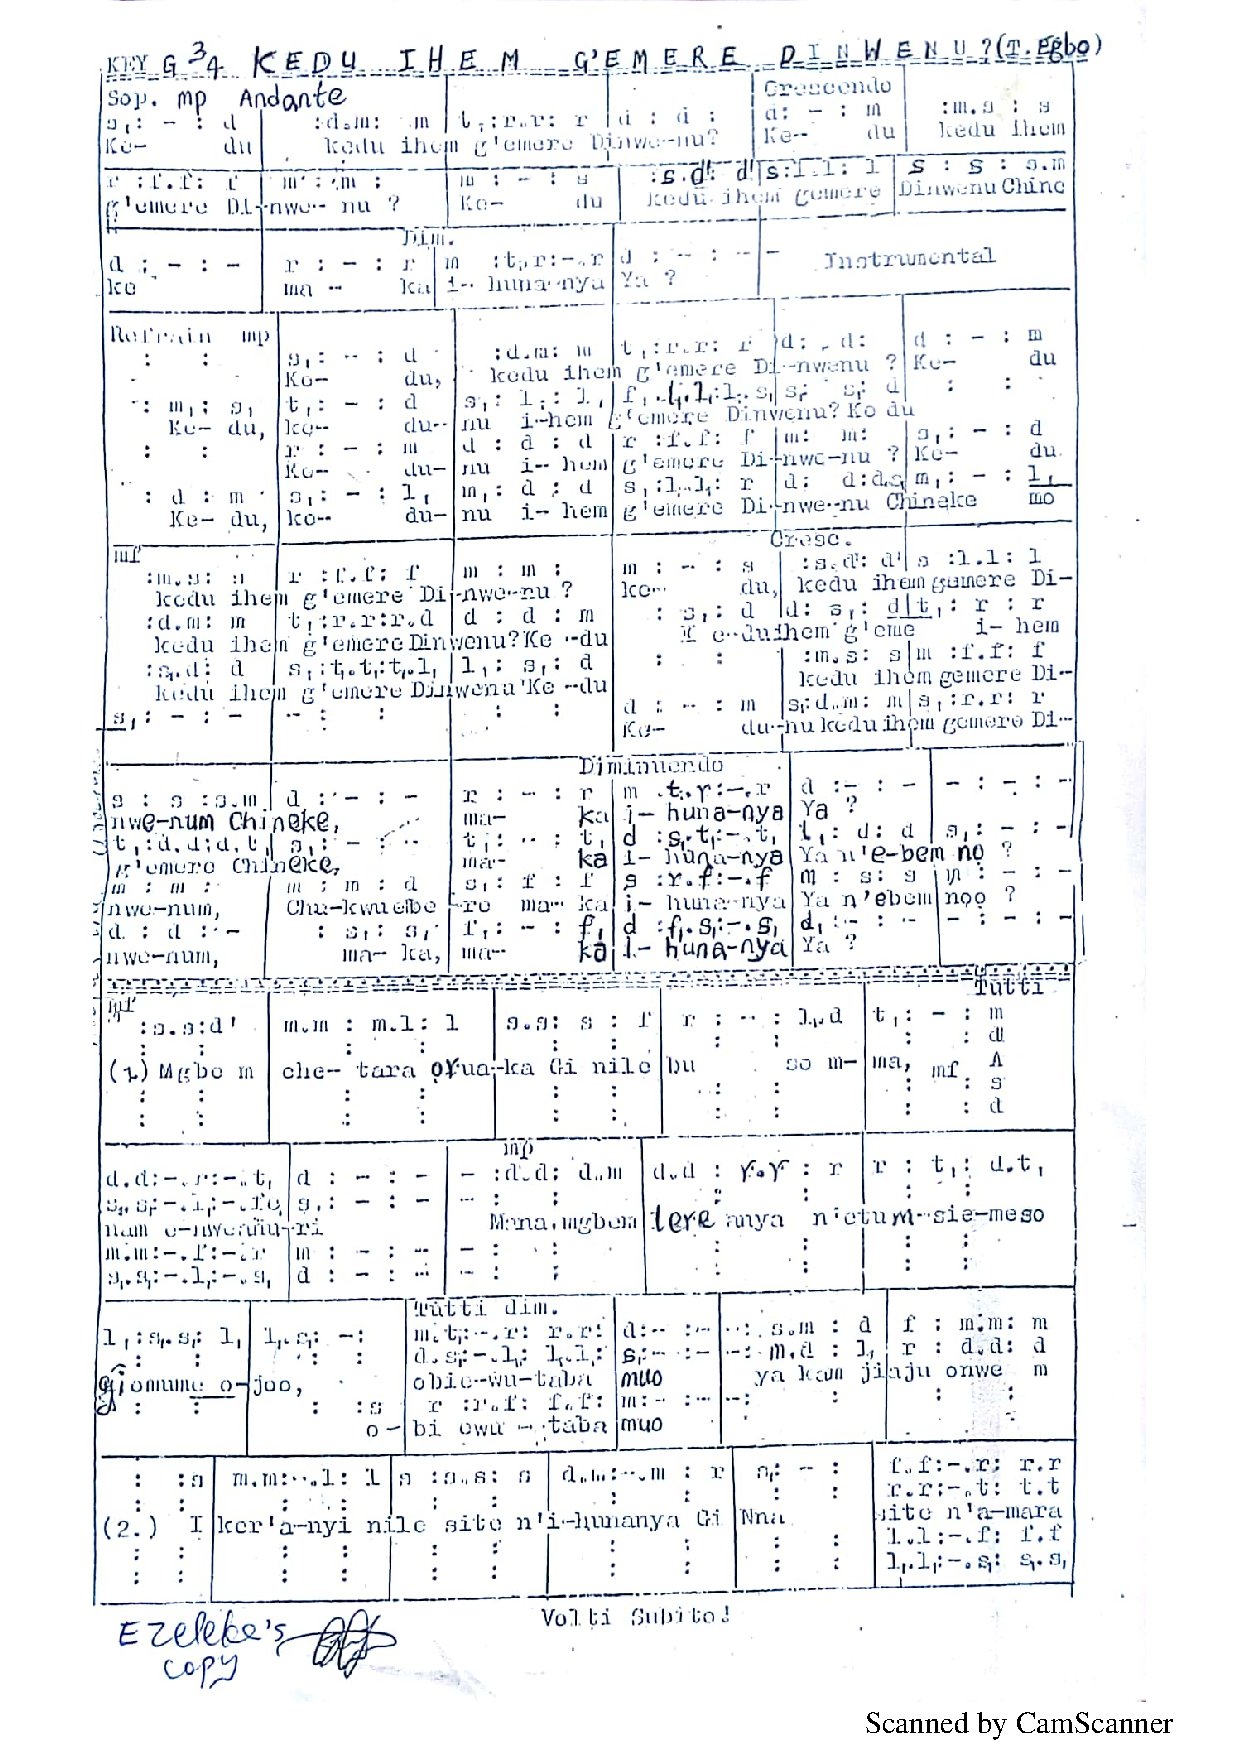 KEY G 3/4 KEDU IHEM G'EMERE DINWENU? (T. Egbo)
Sop. mp Andante Crescendo
s,: - : d :d.m: m t,:r.r: r d : d : d: - : m :m.s : s
Ke- du kedu ihem g'emere Dinwe--nu? Ke-- du kedu ihem
r :f.f: f m : m : m : - : s :s.d': d' s:l.l: l s : s : s.m
g'emere Di-nwe-- nu ? Ke- du kedu ihem gemere Dinwenu Chine
Dim.
d : - : - r : - : r m :t,.r:-.r d : - : - - Instrumental
ke ma -- ka i-- huna-nya Ya ?
Refrain mp
: : s,: - : d :d.m: m t,:r.r: r d: . d: d : - : m
Ke- du, kedu ihem g'emere Di--nwenu ? Ke- du
: m,: s, t,: - : d s,: l,: l,
Ke- du, ke-- du-- nu i-hem g'emere Dinwenu? Ke du
: : r : - : m d : d : d r :f.f: f m: m: s,: - : d
Ke- du- nu i-- hem g'emere Di-nwe-nu ? Ke- du.
: d : m s,: - : l, m,: d : d s,:l,.l,: r d: d:d.s, m,: - : l,
Ke- du, ke-- du- nu i- hem g'emere Di-nwe--nu Chineke mo
mf Cresc.
:m.s: s r :f.f: f m : m : m : - : s :s.d': d' s :l.l: l
kedu ihem g'emere Di-nwe--nu ? ke-- du, kedu ihem gemere Di-
:d.m: m t,:r.r:r.d d : d : m : s,: d d: s,: d t,: r : r
kedu ihem g'emere Dinwenu? Ke --du e--duihem g'eme i- hem
:s,.d: d s,:t,.t,:t,.l, l,: s,: d : : :m.s: s m :f.f: f
kedu ihem g'emere Dinwenu Ke --du kedu ihem gemere Di--
s,: - : - -- : : : : d : - : m s,:d.m: m s,:r.r: r
Ke- du--nu kedu ihem gemere Di--
Diminuendo
s : s :s.m d : - : - r : - : r m .t,.r:-.r d :- : - - : - : -
nwe-num Chineke, ma- ka i- huna-nya Ya ?
t,:d.d:d.t, s,: - : - t,: - : t, d :s,.t,:-.t, l,: d: d s,: - : -
g'emere Chineke, ma- ka i- huna-nya Ya n'e-bem no ?
m : m : m : m : d s,: f : f s :r.f:-.f m : s: s m : - : -
nwe-num, Chu-kwuebe -re ma-- ka i- huna-nya Ya n'ebem noo ?
d : d : - : s,: s, f,: - : f, d :f,.s,:-.s, d,:- : - - : - : -
nwe-num, ma- ka, ma- ka i- huna-nya Ya ?
mf Tutti
:s.s:d' m.m : m.l: l s.s: s : f r : - : l,.d t,: - : m
: : : : : : : : : d
(1) Mgbe m che- tara orua-ka Gi nile bu so m- ma, mf A
: : : : : : : : : s
: : : : : : : : : d
mp
d.d:-.r:-.t, d : - : - - :d.d: d.m d.d : r.r : r r : t,: d.t,
s,.s,:-.l,:-.fe, s,: - : - - : : : : : :
nam e-nwenñu-ri Mana, mgbem lere anya n'etum-sie-meso
m.m:-.f:-.r m : - : - - : : : : : :
s,.s,:-.l,:-.s, d : - : - - : : : : : :
Tutti dim.
l,:s,.s,: l, l,.s,: -: m.t,:-.r: r.r: d:- :- -: s.m : d f : m:m: m
: : : : d.s,:-.l,: l,.l,: s,:- :- -: m.d : l, r : d.d: d
giomume o-joo, obie-wu-taba muo ya kam jiaju onwe m
: : : :s r :r.f: f.f: m:- :- -: : : :
o- bi ewu -- taba muo
: :s m.m:-.l: l s :s.s: s : r s,: - : f.f:-.r: r.r
: : : : : : : : : : r.r:-.t: t.t
(2.) I ker'a-nyi nile site n'i-hunanya Gi Nna site n'a-mara
: : : : : : : : : : l.l:-.f: f.f
: : : : : : : : : : l,.l,:-.s,: s,.s,
Volti Subito!
Ezeleke's
copy
Scanned by CamScanner